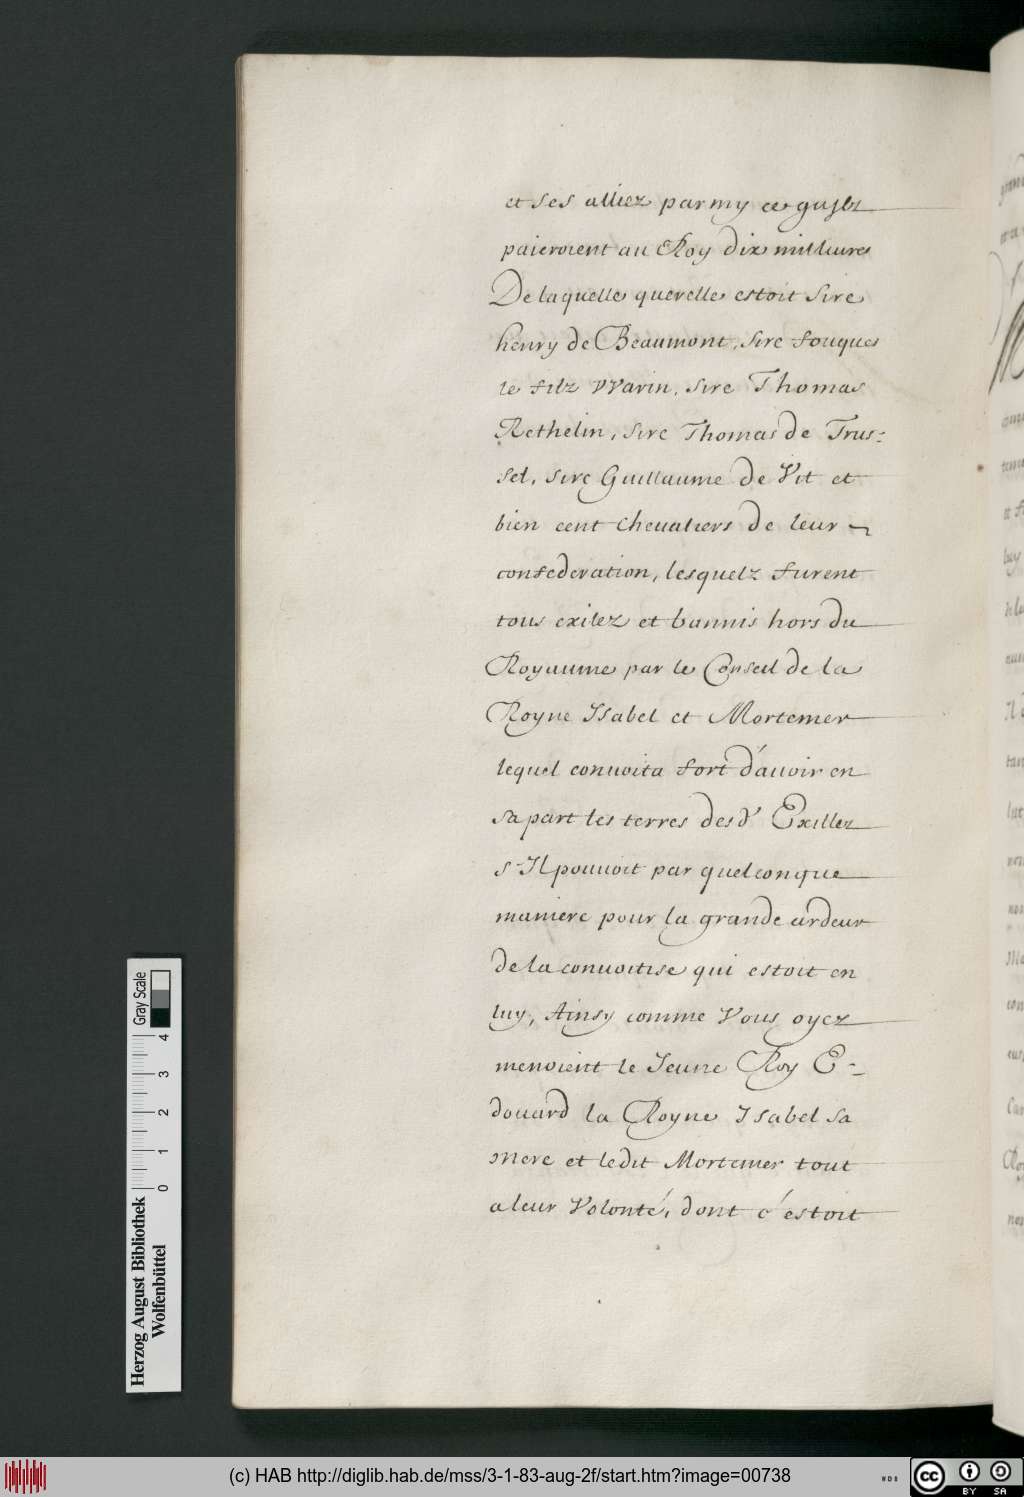 et ses alliez parmy ce qu'ilz
paieroient au Roy dix mil liures
De laquelle querelle estoit Sire
henry de Beaumont, Sire fouques
le filz vvarin, Sire Thomas
Rethelin, Sire Thomas de Trus-
sel, Sire Guillaume de Vit et
bien cent Cheualiers de leur
confederation, lesquelz furent
tous exilez et bannis hors du
Royaume par le Conseil de la
Royne Isabel et Mortemer
lequel conuoita fort d'auoir en
sa part les terres desd' Exillez
s'Il pouuoit par quelconque
maniere pour la grande ardeur
de la conuoitise qui estoit en
luy, Ainsy comme Vous oyez
menoient le Jeune Roy E-
douard la Royne Isabel sa
mere et ledit Mortemer tout
a leur Volonté, dont c'estoit
Herzog August Bibliothek
Wolfenbüttel
0 1 2 3 4
Gray Scale
(c) HAB http://diglib.hab.de/mss/3-1-83-aug-2f/start.htm?image=00738
WDB
cc
BY SA